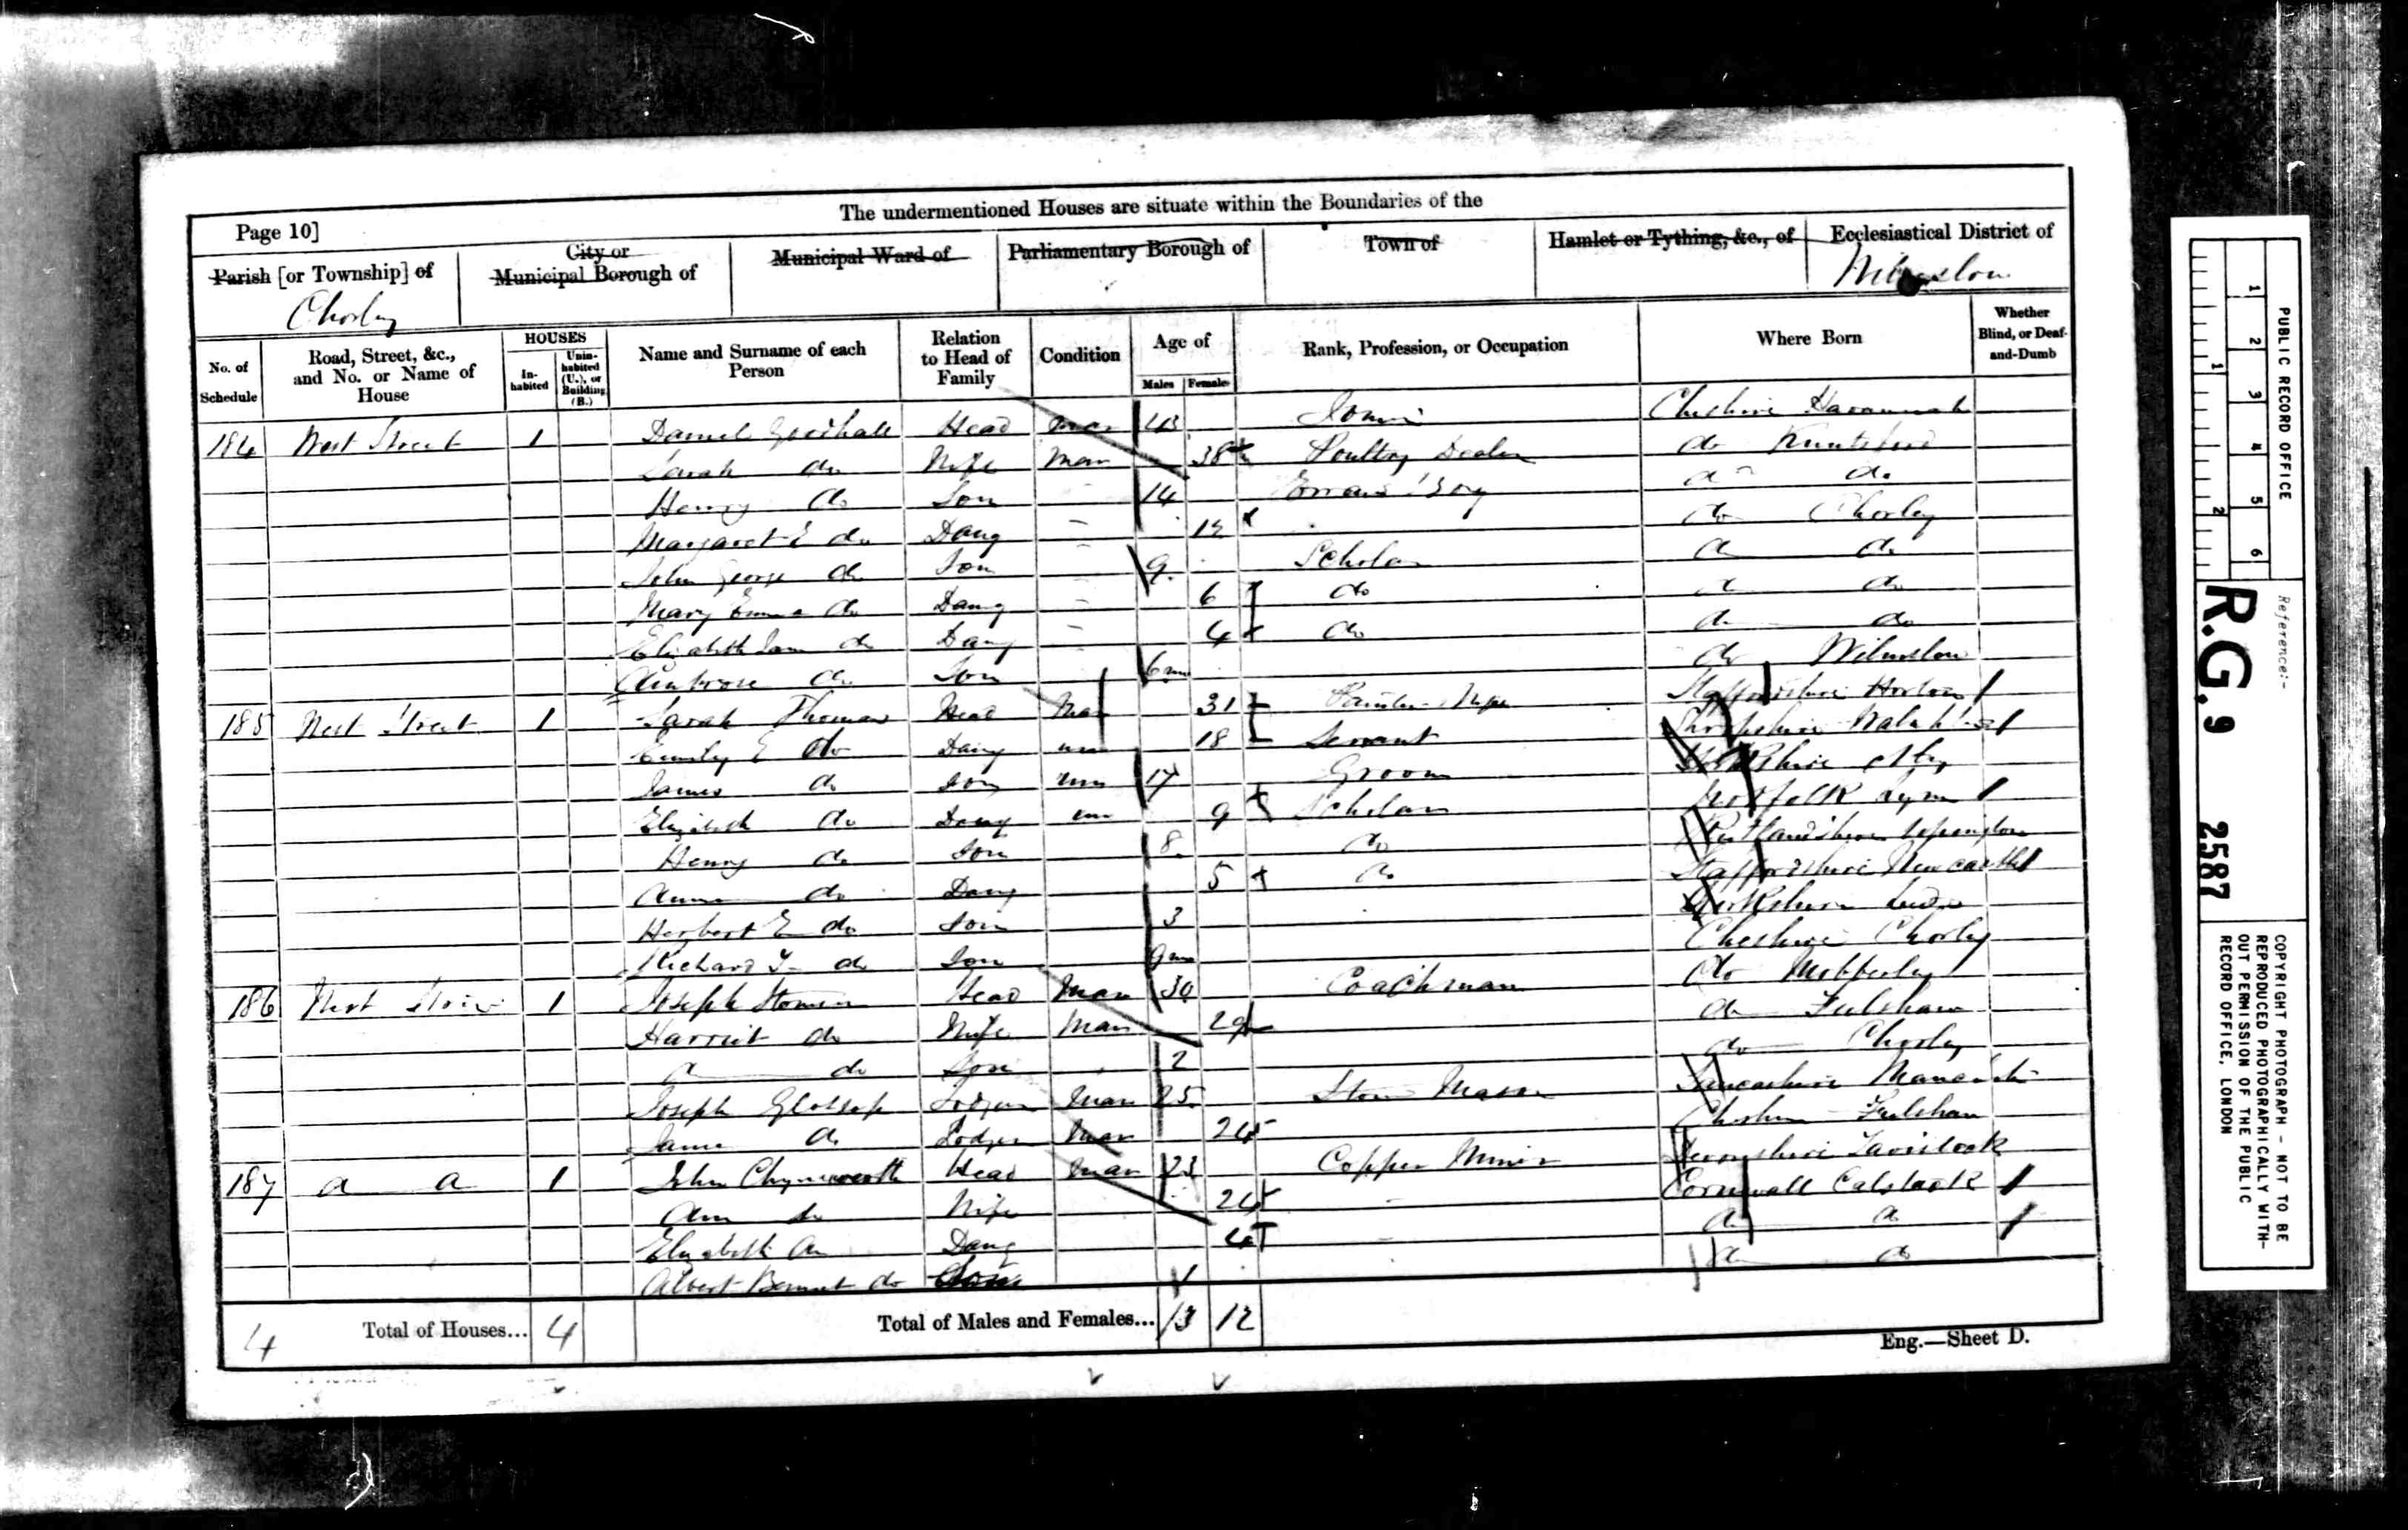 The undermentioned Houses are situate within the Boundaries of the
Page 10]
Parish [or Township] of
Chorley
City or
Municipal Borough of
Municipal Ward of
Parliamentary Borough of
Town of
Hamlet or Tything, &c., of
Ecclesiastical District of
Wilmslow
No. of
Schedule
Road, Street, &c.,
and No. or Name of
House
HOUSES
In-
habited
Unin-
habited
(U.), or
Building
(B.)
Name and Surname of each
Person
Relation
to Head of
Family
Condition
Age of
Males
Females
Rank, Profession, or Occupation
Where Born
Whether
Blind, or Deaf-
and-Dumb
184 West Street 1 Daniel Head Mar 43 Cheshire
Sarah do Wife Mar 38 Poultry Dealer do Knutsford
Henry do Son 14 Errand Boy do do
Margaret E do Daug 12 do Chorley
John George do Son 9 Scholar do do
Mary Emma do Daug 6 do do do
Elizabeth Jane do Daug 4 do do do
Ambrose do Son 6m do Wilmslow
185 West Street 1 Sarah Thomas Head Mar 31 Wife Staffordshire
Emily E do Daug un 18 Servant Shropshire
James do Son un 17 Groom
Elizabeth do Daug un 9 Scholar Norfolk Lynn
Henry do Son 8 do Rutlandshire Uppingham
Anne do Daug 5 do Staffordshire Newcastle
Herbert E do Son 3 Yorkshire Leeds
Richard T do Son 9m Cheshire Chorley
186 West Street 1 Joseph Head Mar 30 Coachman do Mobberley
Harriet do Wife Mar 29 do Fulshaw
do Son 2 do Chorley
Joseph Glossop Lodger Mar 25 Stone Mason Lancashire Manchester
Jane do Lodger Mar 24 Cheshire Fulshaw
187 do do 1 John Head Mar 23 Copper Miner Devonshire Tavistock
Ann do Wife 24 Cornwall Calstock
Elizabeth do Daug 4 do do
Albert Bennet do Son 1 do do
4 Total of Houses... 4 Total of Males and Females... 13 12
Eng.—Sheet D.
PUBLIC RECORD OFFICE
1 2 3 4 5 6
1 2
Reference:-
R.G. 9 2587
COPYRIGHT PHOTOGRAPH - NOT TO BE
REPRODUCED PHOTOGRAPHICALLY WITH-
OUT PERMISSION OF THE PUBLIC
RECORD OFFICE, LONDON